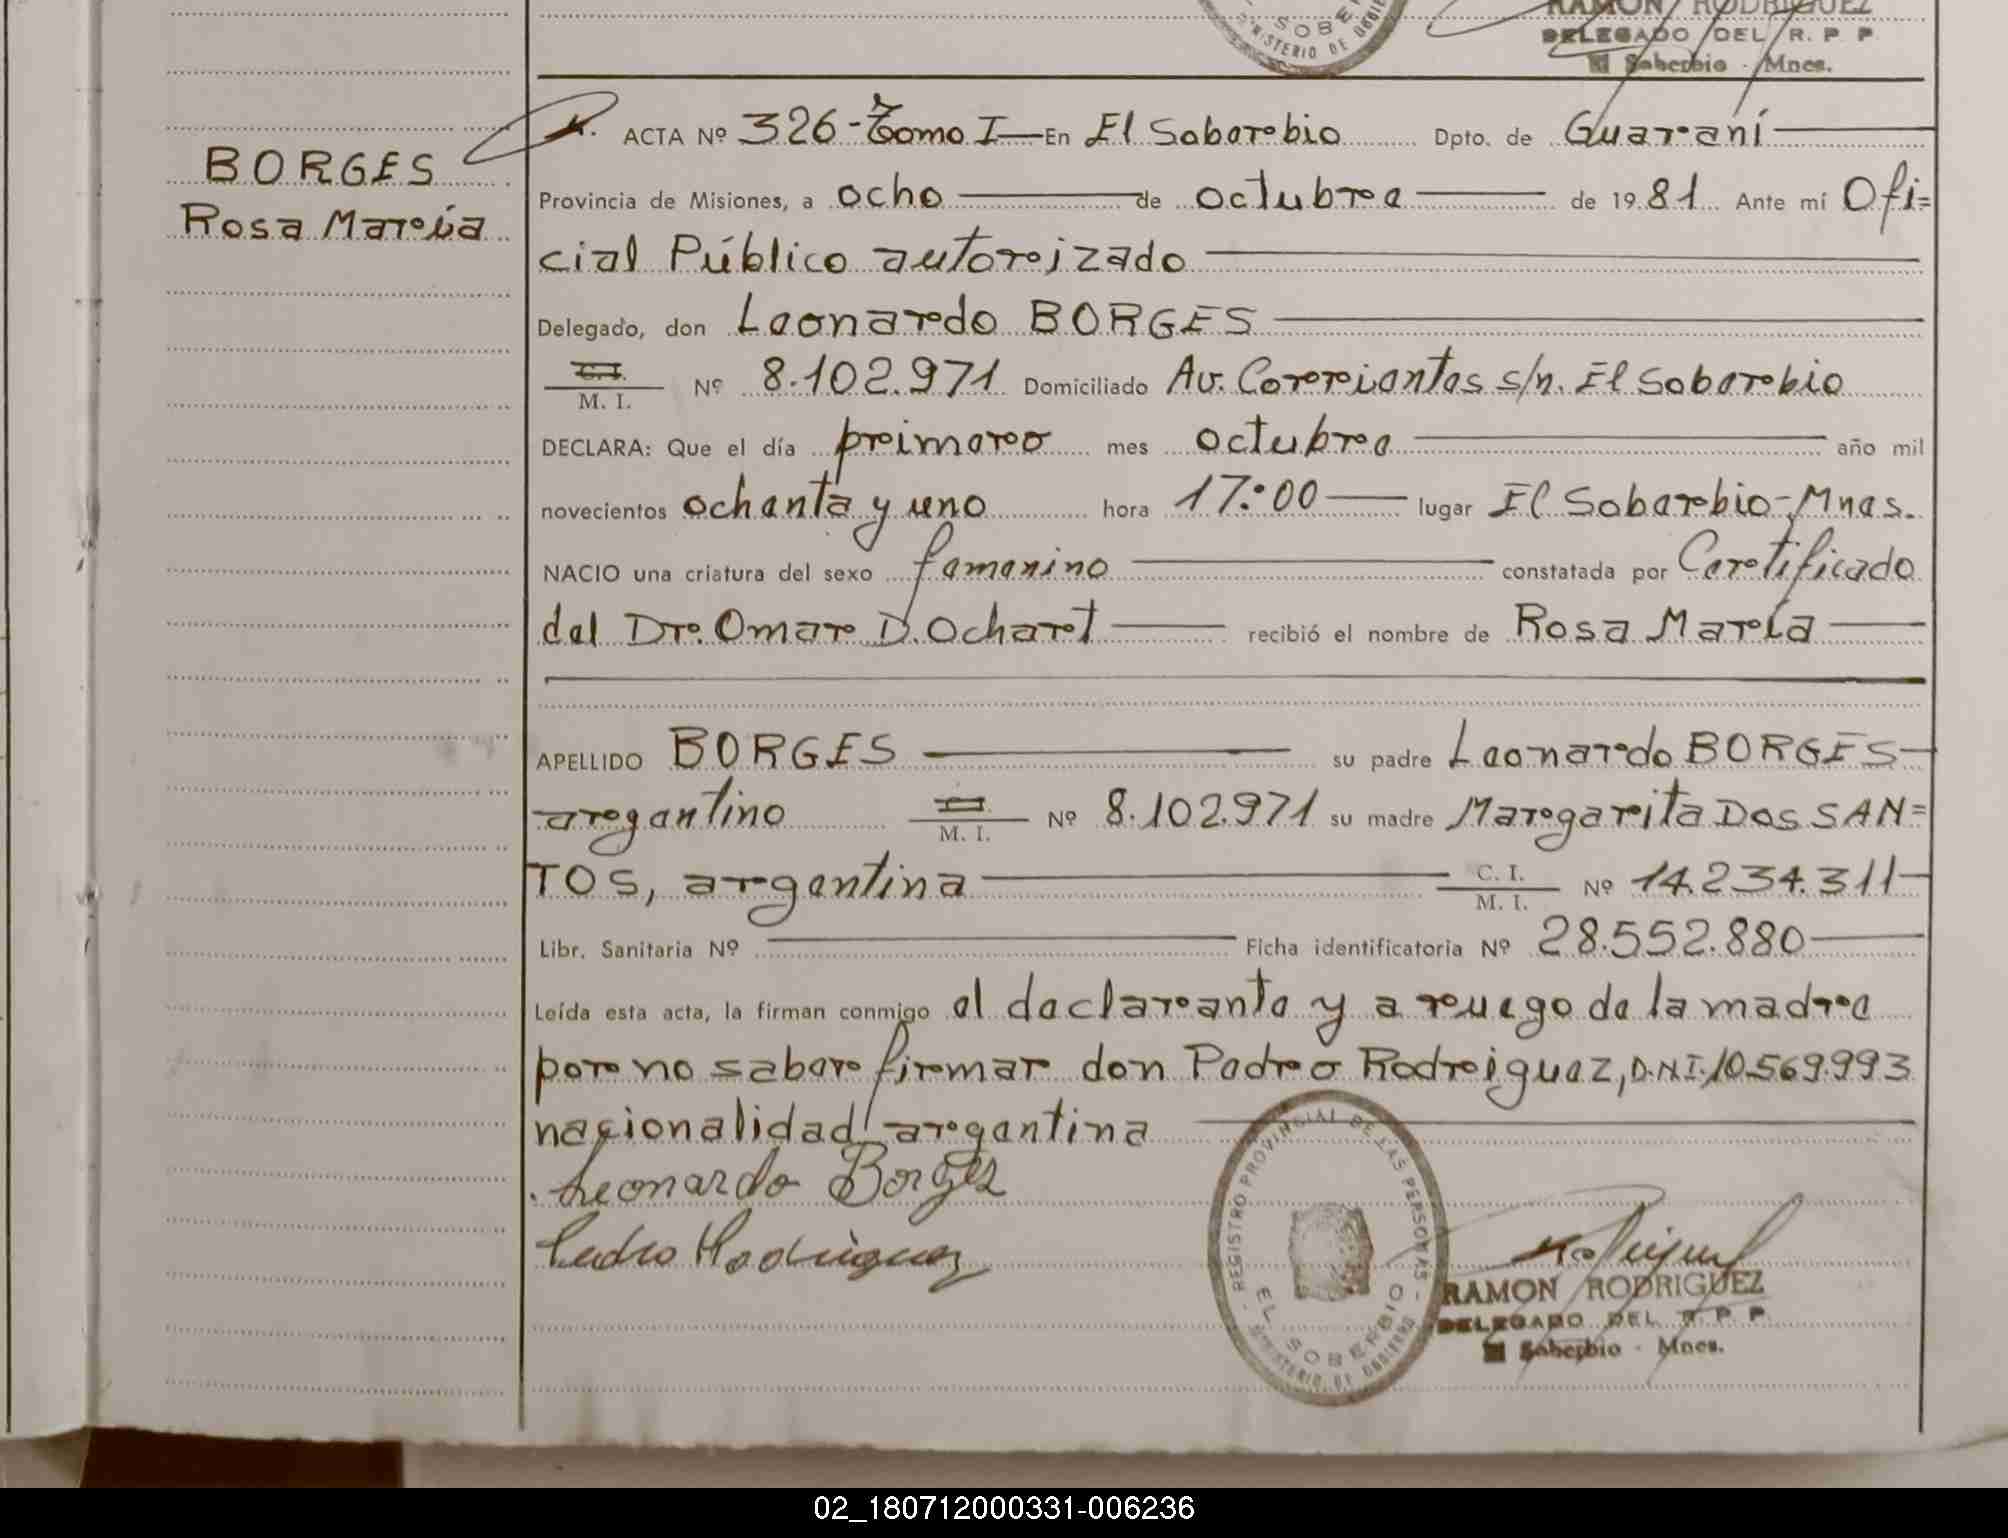 SOBE
MINISTERIO DE GOBIE
RAMON RODRIGUEZ
DELEGADO DEL R. P. P.
El Soberbio - Mnes.
BORGES
Rosa María
ACTA Nº 326-Tomo I En El Soberbio Dpto. de Guaraní
Provincia de Misiones, a ocho de octubre de 1981 Ante mí Ofi=
cial Público autorizado
Delegado, don Leonardo BORGES
C. I.
M. I. Nº 8.102.971 Domiciliado Av. Corrientes s/n. El Soberbio
DECLARA: Que el día primero mes octubre año mil
novecientos ochenta y uno hora 17:00 lugar El Soberbio-Mnes.
NACIO una criatura del sexo femenino constatada por Certificado
del Dr. Omar D. Ocharet recibió el nombre de Rosa María
APELLIDO BORGES su padre Leonardo BORGES
argentino M. I. Nº 8.102.971 su madre Margarita Dos SAN=
TOS, argentina C. I.
M. I. Nº 14.234.311
Libr. Sanitaria Nº Ficha identificatoria Nº 28.552.880
Leída esta acta, la firman conmigo el declarante y a ruego de la madre
por no saber firmar don Pedro Rodriguez, D.N.I. 10.569.993
nacionalidad argentina
Leonardo Borges
Pedro Rodriguez
REGISTRO PROVINCIAL DE LAS PERSONAS
EL SOBERBIO
MINISTERIO DE GOBIERNO
RAMON RODRIGUEZ
DELEGADO DEL R. P. P.
El Soberbio - Mnes.
02_180712000331-006236